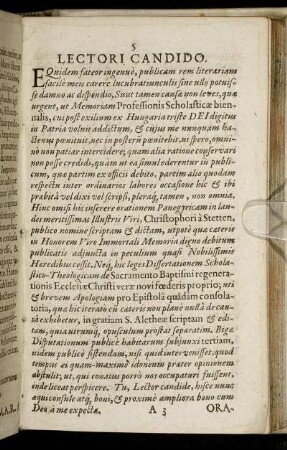 5
LECTORI CANDIDO.
EQuidem fateor ingenuò, publicam rem literariam
facilè meis carere lucubratiunculis sine ullo potuis-
se damno ac dispendio, Sunt tamen causæ non leves, quæ
urgent, ut Memoriam Professionis Scholasticæ bien-
nalis, cui post exilium ex Hungaria triste DEI digitus
in Patria voluit addictum, & cujus me nunquam ha-
ctenus pœnituit, nec in posterū pœnitebit, ut spero, omni-
nò non patiar intervidere; quam aliâ ratione conservari
non posse credidi, quàm ut ea simul ederentur in publi-
cum, quæ partim ex officii debito, partim alio quodam
respectu inter ordinarios labores occasione hic & ibi
præbitâ vel dixi vel scripsi, pleraq́;, tamen, non omnia.
Hinc omisi hic inserere orationem Panegyricam in lau-
des meritissimas Illustris Viri, Christophori à Stetten,
publico nomine scriptam & dictam, utpotè quæ caterie
in Honorem Viro Immortali Memoriâ digno debitum
publicatis adjuncta in peculium quasi Nobilissimis
Hæredibus cessit. Neq́;, hic leges Dissertationem Schola-
stico-Theologicam de Sacramento Baptismi regenera-
tionis Ecclesiæ Christi veræ novi fœderis proprio; uti
& brevem Apologiam pro Epistolâ quâdam consola-
toria, quæ hic iterato cū cæteris non planè nullâ de cau-
sâ exhibetur, in gratiam S. Aletheæ scriptam & edi-
tam, quia utrumq́; opusculum prostat separatim. Bigæ
Disputationum publicè habitarum subjunxi tertiam,
itidem publicè sistendam, nisi quid intervenisset, quod
tempus ei quàm-maximè idoneum præter opinionem
abstulit; ut, qui conatus porrò nos occupaturi fuissent,
inde liceat perspicere. Tu, Lector candide, hisce nunc
æqui consule atq́;, boni, & proximè ampliora bono cum
Deo à me expecta.
A 3
ORA-